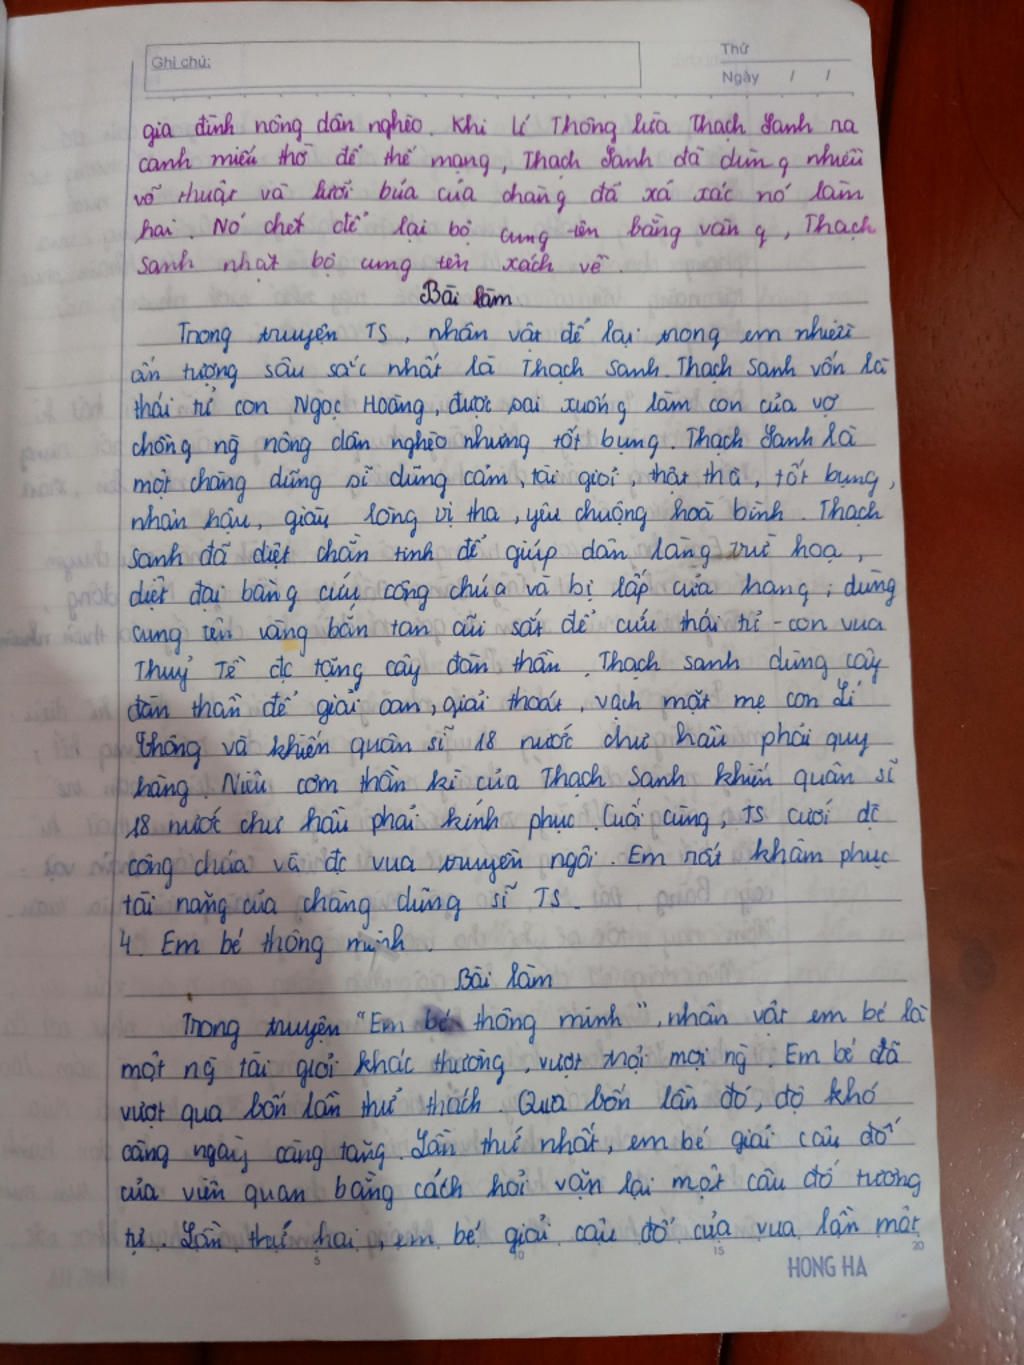 Ghi chú:
Thứ
Ngày / /
gia đình nông dân nghèo. Khi Lí Thông lừa Thạch Sanh ra
canh miếu thờ để thế mạng, Thạch Sanh đã dùng nhiều
võ thuật và lưỡi búa của chàng đã xả xác nó làm
hai. Nó chết để lại bộ cung tên bằng vàng, Thạch
Sanh nhặt bộ cung tên xách về.
Bài làm
Trong truyện TS, nhân vật để lại trong em nhiều
ấn tượng sâu sắc nhất là Thạch Sanh. Thạch Sanh vốn là
thái tử con Ngọc Hoàng, được sai xuống làm con của vợ
chồng ng̃ nông dân nghèo nhưng tốt bụng. Thạch Sanh là
một chàng dũng sĩ dũng cảm, tài giỏi, thật thà, tốt bụng,
nhân hậu, giàu lòng vị tha, yêu chuộng hoà bình. Thạch
Sanh đã diệt chằn tinh để giúp dân làng trừ hoạ,
diệt đại bàng cứu công chúa và bị lấp cửa hang; dùng
cung tên vàng bắn tan cũi sắt để cứu thái tử - con vua
Thuỷ Tề đc tặng cây đàn thần. Thạch Sanh dùng cây
đàn thần để giải oan, giải thoát, vạch mặt mẹ con Lí
Thông và khiến quân sĩ 18 nước chư hầu phải quy
hàng. Niêu cơm thần kì của Thạch Sanh khiến quân sĩ
18 nước chư hầu phải kính phục. Cuối cùng, TS cưới đc
công chúa và đc vua truyền ngôi. Em rất khâm phục
tài năng của chàng dũng sĩ TS.
4. Em bé thông minh.
Bài làm
Trong truyện "Em bé thông minh", nhân vật em bé là
một ng̃ tài giỏi khác thường, vượt trội mọi ng̃. Em bé đã
vượt qua bốn lần thử thách. Qua bốn lần đó, độ khó
càng ngày càng tăng. Lần thứ nhất, em bé giải câu đố
của viên quan bằng cách hỏi vặn lại một câu đố tương
tự. Lần thứ hai, em bé giải câu đố của vua lần một
5 10 15 20
HONG HA